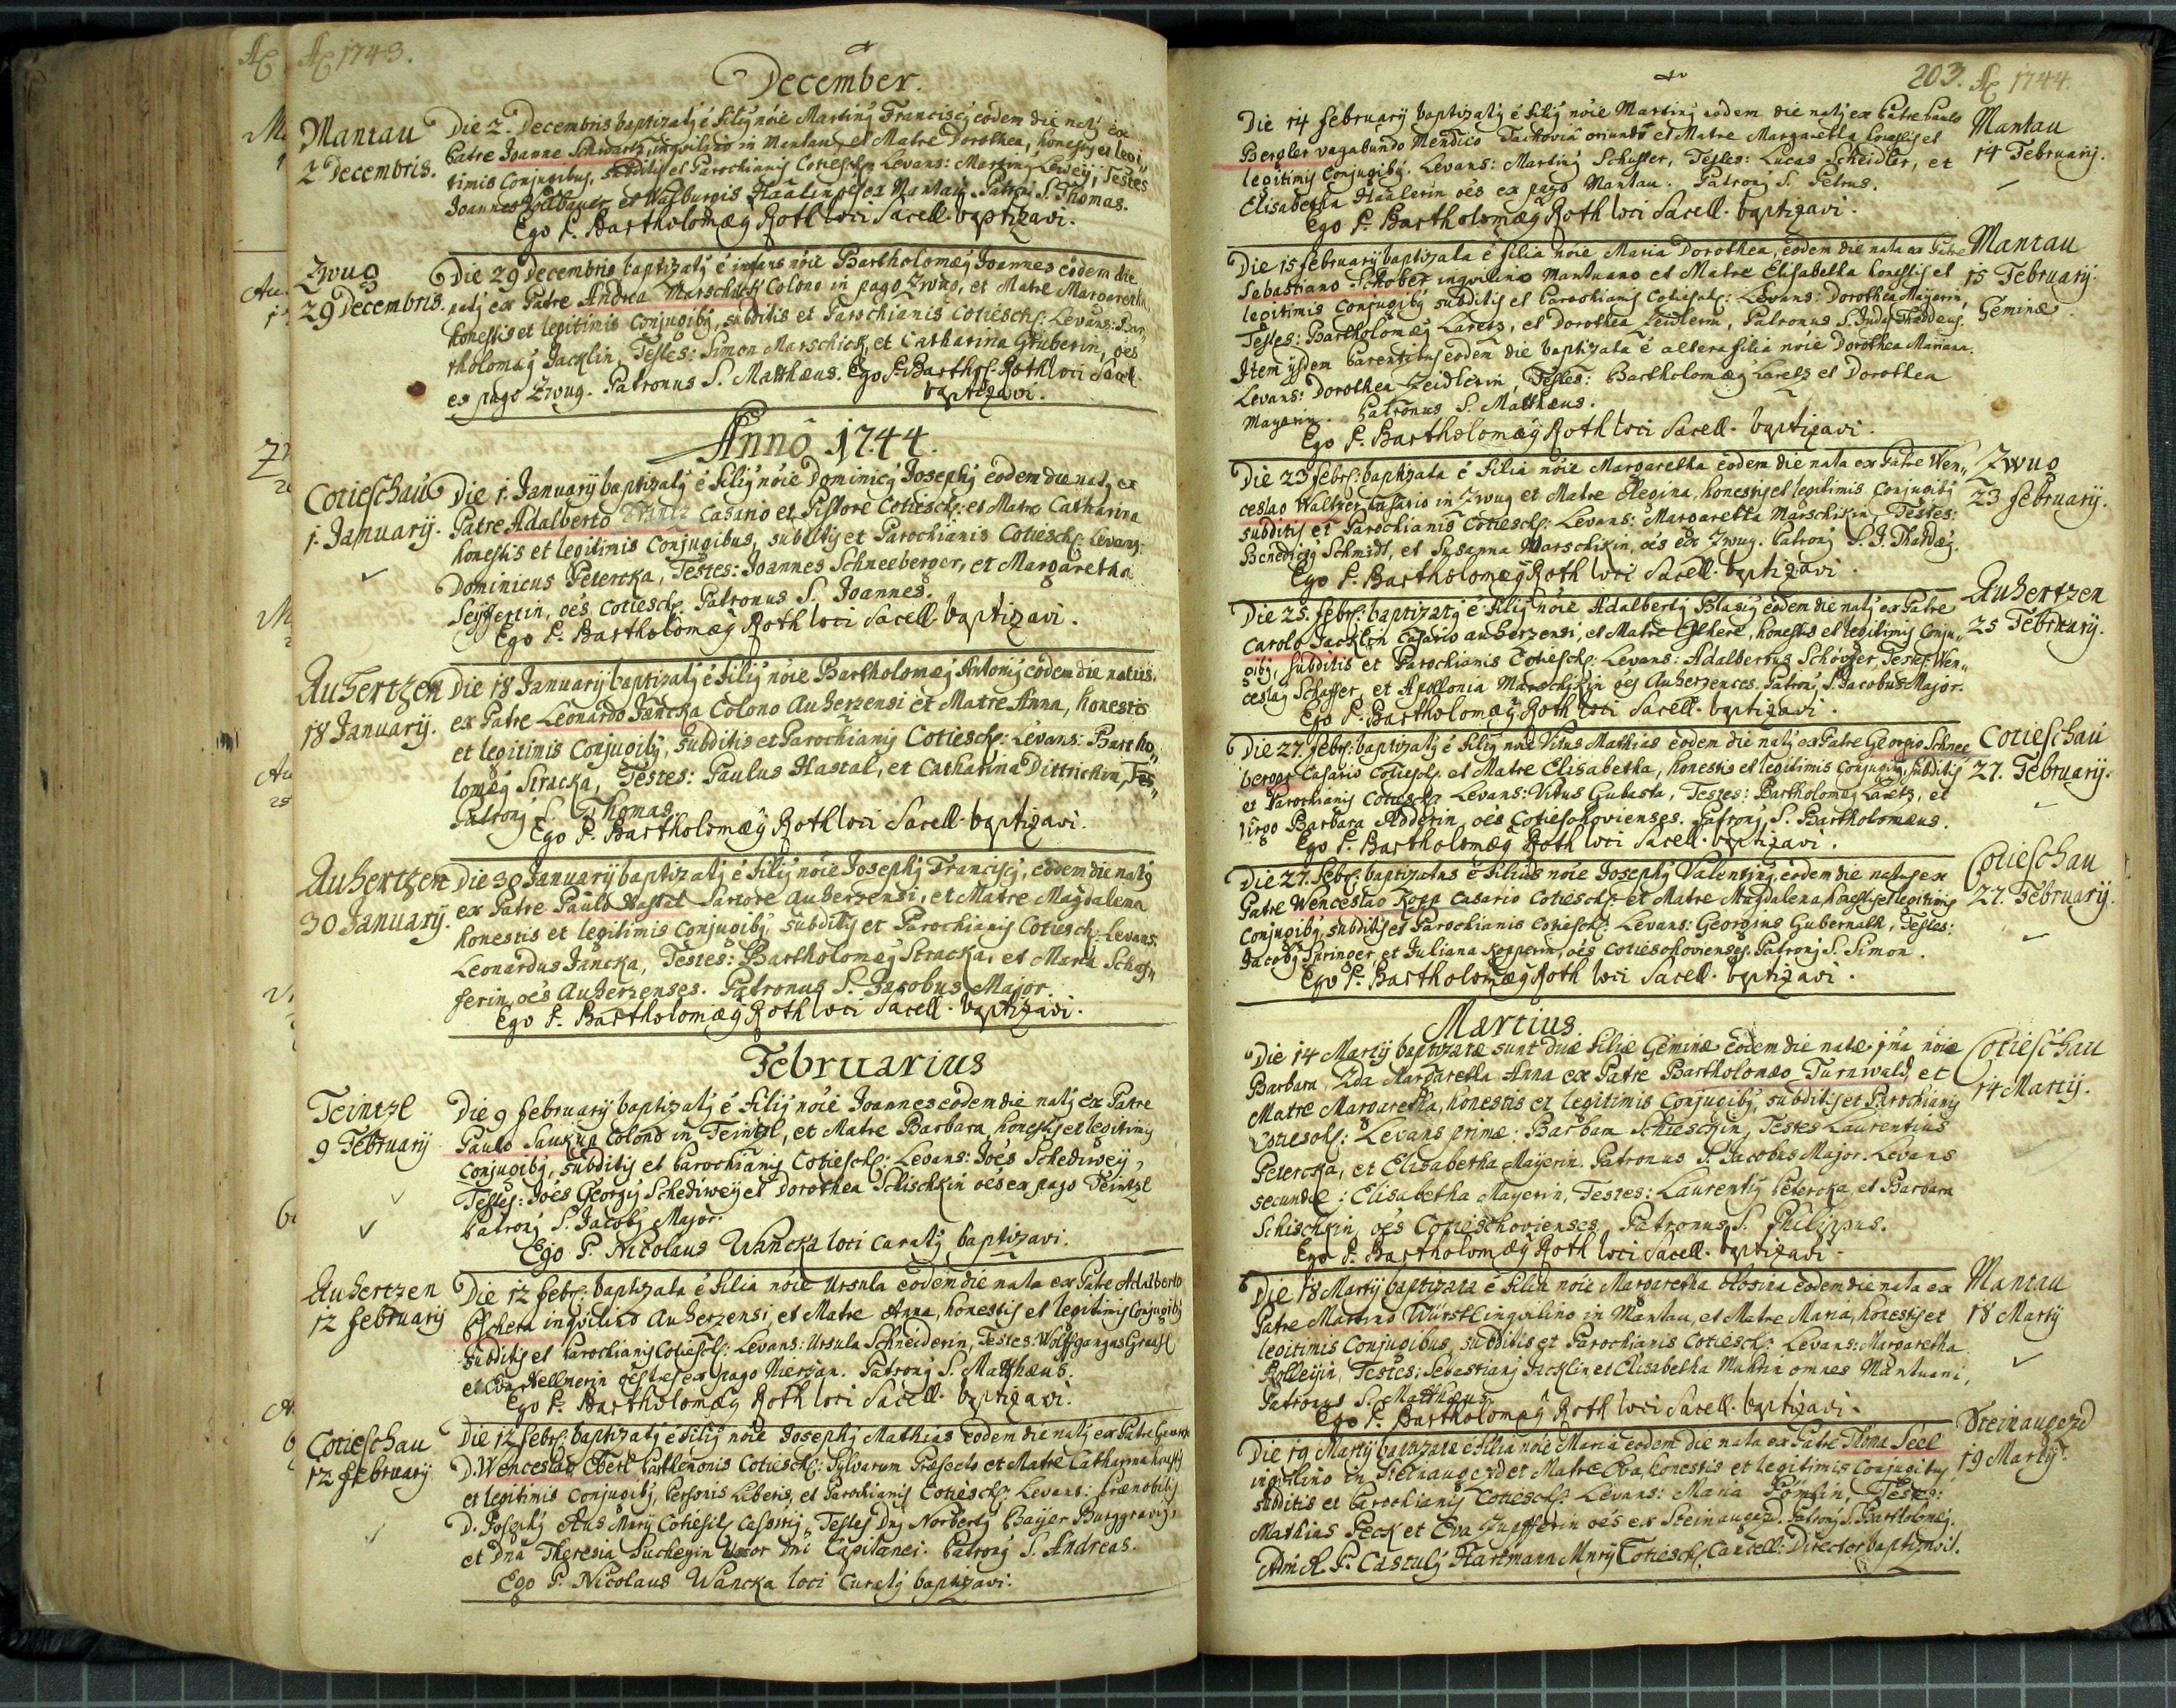 Ao 1743.
December.
Mantau
2 Decembris.
Die 2. Decembris baptizatq é filiq nóie Martinq Franciscq eodem die natq ex
Patre Joanne Schwartz inqvilino in Mantau, et Matre Dorothea, honestis et legi„
timis Conjugibus, subditis et Parochianis Coties: Levans: Martinq Testes
Joannes et Walburgis ex Mantau. Patronq S. Thomas.
Ego P. Bartholomæq Roth loci Sacell. baptizavi.
Zwug
29 Decembris.
Die 29 Decembris baptizatq é infans nóie Bartholomæq Joannes eodem die
natq ex Patre Andrea Marschick Colono in pago Zwug, et Matre Margaretha,
honestis et legitimis Conjugibq, subditis et Parochianis Cotiesch: Levans: Bar„
tholomæq Jacklin, Testes: Simon Marschick, et Catharina Gruberin, óes
ex pago Zwug. Patronus S. Matthæus. Ego P. Barthol: Roth loci Sacell.
baptizavi.
Anno 1744.
Cotieschau
1. Januarij.
Die 1. Januarij baptizatq é filiq nóie Dominicq Josephq eodem die natq ex
Patre Adalberto Casario et Pistore Cotiesch: et Matre Catharina
honestis et legitimis Conjugibus, subditis et Parochianis Cotiesch: Levans:
Dominicus Petercka, Testes: Joannes Schneeberger, et Margaretha
Seyffertin, óes Cotiesch: Patronus S. Joannes.
Ego P. Bartholomæq Roth loci Sacell. baptizavi.
Auhertzen
18 Januarij.
Die 18 Januarij baptizatq é filiq nóie Bartholomæq Antonij eodem die natus
ex Patre Leonardo Jancka Colono Auherzensi et Matre Anna, honestis
et legitimis Conjugibq, subditis et Parochianis Cotiesch: Levans: Bartho„
lomæq Stracka, Testes: Paulus Hastal, et Catharina Dittrichin,
Patronq S. Thomas.
Ego P. Bartholomæq Roth loci Sacell. baptizavi.
Auhertzen
30 Januarij.
Die 30 Januarij baptizatq é filiq nóie Josephq Franciscq, eodem die natq
ex Patre Paulo Hastal Sartore Auherzensi, et Matre Magdalena
honestis et legitimis Conjugibq, subditis et Parochianis Cotiesch: Levans:
Leonardus Jancka, Testes: Bartholomæq Stracka, et Maria Schaf„
ferin, óes Auherzenses. Patronus S. Jacobus Major.
Ego P. Bartholomæq Roth loci Sacell. baptizavi.
Februarius
Teintzl
9 Februarij
Die 9 Februarij baptizatq é filiq nóie Joannes eodem die natq ex Patre
Paulo Saukup Colono in Teintzl, et Matre Barbara, honestis et legitimis
Conjugibq, subditis et Parochianis Cotiesch: Levans: Jóes Schediweij,
Testes: Jóes Georgiq Schediweij et Dorothea Schischkin óes ex pago Teintzl
Patronq S. Jacobq Major.
Ego P. Nicolaus Wancka loci Curatq baptizavi.
Auhertzen
12 februarij
Die 12 febr: baptizata é filia nóie Ursula eodem die nata ex Patre Adalberto
inqvilino Auherzensi, et Matre Anna, honestis et legitimis Conjugibq
subditis et Parochianis Cotiesch: Levans: Ursula Schneiderin, Testes: Wolffgangus
et Eva Kellnerin ex pago Nierzan. Patronq S. Matthæus.
Ego P. Bartholomæq Roth loci Sacell. baptizavi.
Cotieschau
12 februarij
Die 12 febr: baptizatq é filiq nóie Josephq Mathias eodem die natq ex Patre
D. Wenceslao Eberl Cotiesch: Sylvarum Præfecto et Matre Catharina
et legitimis Conjugibq, Personis Liberis, et Parochianis Cotiesch: Levans: Prænobilis
D. Josephq Testes Dnq Norbertq Bayer Burggraviq,
et Dna Theresia Sucheyin Uxor Dni Capitanei. Patronq S. Andreas.
Ego P. Nicolaus Wancka loci Curatq baptizavi.
203. Ao 1744.
Mantau
14 Februarij.
Die 14 februarij baptizatq é filiq nóie Martinq eodem die natq ex Patre Paulo
Bergler vagabundo Mendico Tachovia oriundo et Matre Margaretha honestis et
legitimis Conjugibq. Levans: Martinq Schuster, Testes: Lucas Scheidler, et
Elisabetha Haalerin óes ex pago Mantau. Patronq S. Petrus.
Ego P. Bartholomæq Roth loci Sacell. baptizavi.
Mantau
15 Februarij.
Geminæ.
Die 15 februarij baptizata é filia nóie Maria Dorothea, eodem die nata ex Patre
Sebastiano Schober inqvilino Mantuano et Matre Elisabetha honestis et
legitimis Conjugibq subditis et Parochianis Cotiesch: Levans: Dorothea Mayerin,
Testes: Bartholomæq Laretz, et Dorothea Zeidlerin, Patronus S. Judas Thaddæus.
Item ijsdem Parentibus eodem die baptizata é altera filia nóie Dorothea Mariana.
Levans: Dorothea Zeidlerin, Testes: Bartholomæq Laretz et Dorothea
Mayerin. Patronus S. Matthæus.
Ego P. Bartholomæq Roth loci Sacell. baptizavi.
Zwug
23 februarij.
Die 23 febr: baptizata é filia nóie Margaretha eodem die nata ex Patre Wen„
ceslao Waltner Casario in Zwug et Matre Regina, honestis et legitimis Conjugibq
subditis et Parochianis Cotiesch: Levans: Margaretha Marschikin, Testes:
Benedictq Schmidt, et Susanna Marschikin, óes ex Zwug. Patronq S. J. Thaddæq.
Ego P. Bartholomæq Roth loci Sacell. baptizavi.
Auhertzen
25 Februarij.
Die 25. febr: baptizatq é filiq nóie Adalbertq Blasiq eodem die natq ex Patre
Carolo Jacklin Casario auherzensi, et Matre Esthere, honestis et legitimis Conju„
gibq, subditis et Parochianis Cotiesch: Levans: Adalbertus Testes: Wen„
ceslaq Schaffer, et Apollonia Marschikin óes Auherzences. Patronq S. Jacobus Major.
Ego P. Bartholomæq Roth loci Sacell. baptizavi.
Cotieschau
27. Februarij.
Die 27. febr: baptizatq é filiq nóie Vitus Mathias eodem die natq ex Patre Georgio Schnee
berger Casario Cotiesch: et Matre Elisabetha, honestis et legitimis Conjugibq, subditis
et Parochianis Cotiesch: Levans: Vitus Gubasta, Testes: Bartholomæq Laretz, et
Virgo Barbara Adderin, óes Cotieschovienses. Patronq S. Bartholomæus.
Ego P. Bartholomæq Roth loci Sacell. baptizavi.
Cotieschau
27. Februarij.
Die 27. febr: baptizatus é filius nóie Josephq Valentinq, eodem die natus ex
Patre Wenceslao Kopp Casario Cotiesch: et Matre Magdalena honestis et legitimis
Conjugibq, subditis et Parochianis Cotiesch: Levans: Georgius Gubernath, Testes:
Jacobq Springer, et Juliana Kopperin, óes Cotieschovienses. Patronq S. Simon.
Ego P. Bartholomæq Roth loci Sacell. baptizavi.
Martius.
Cotieschau
14 Martij.
Die 14 Martij baptizatæ sunt duæ filiæ Geminæ eodem die natæ 1ma nóie
Barbara 2da Margaretha Anna ex Patre Bartholomæo Turnwald, et
Matre Margaretha, honestis et legitimis Conjugibq, subditis et Parochianis
Cotiesch: Levans primæ: Barbara Schieschkin, Testes Laurentius
Petercka, et Elisabetha Mayerin. Patronus S. Jacobus Major. Levans
secundæ: Elisabetha Mayerin, Testes: Laurentiq Petercka, et Barbara
Schischkin, óes Cotieschovienses, Patronus S. Philippus.
Ego P. Bartholomæq Roth loci Sacell. baptizavi.
Mantau
18 Martij
Die 18 Martij baptizata é filia nóie Margaretha Rosina eodem die nata ex
Patre Martino Würstl inqvilino in Mantau, et Matre Maria, honestis et
legitimis Conjugibus, subditis et Parochianis Cotiesch: Levans: Margaretha
Testes: Sebastianq Jacklin et Elisabetha omnes Mantuani,
Patronus S. Matthæus.
Ego P. Bartholomæq Roth loci Sacell. baptizavi.
Steinaugezd
19 Martij.
Die 19 Martij baptizata é filia nóie Maria eodem die nata ex Patre Thoma Seel
inqvilino in Steinaugezd et Matre Eva, honestis et legitimis Conjugibus
subditis et Parochianis Cotiesch: Levans: Maria Testes:
Mathias Peck et Eva óes ex Steinaugezd. Patronq S. Bartholomæq.
Adm. R. P. Castulq Hartmann Cotiesch: Cancell: Director baptizavit.